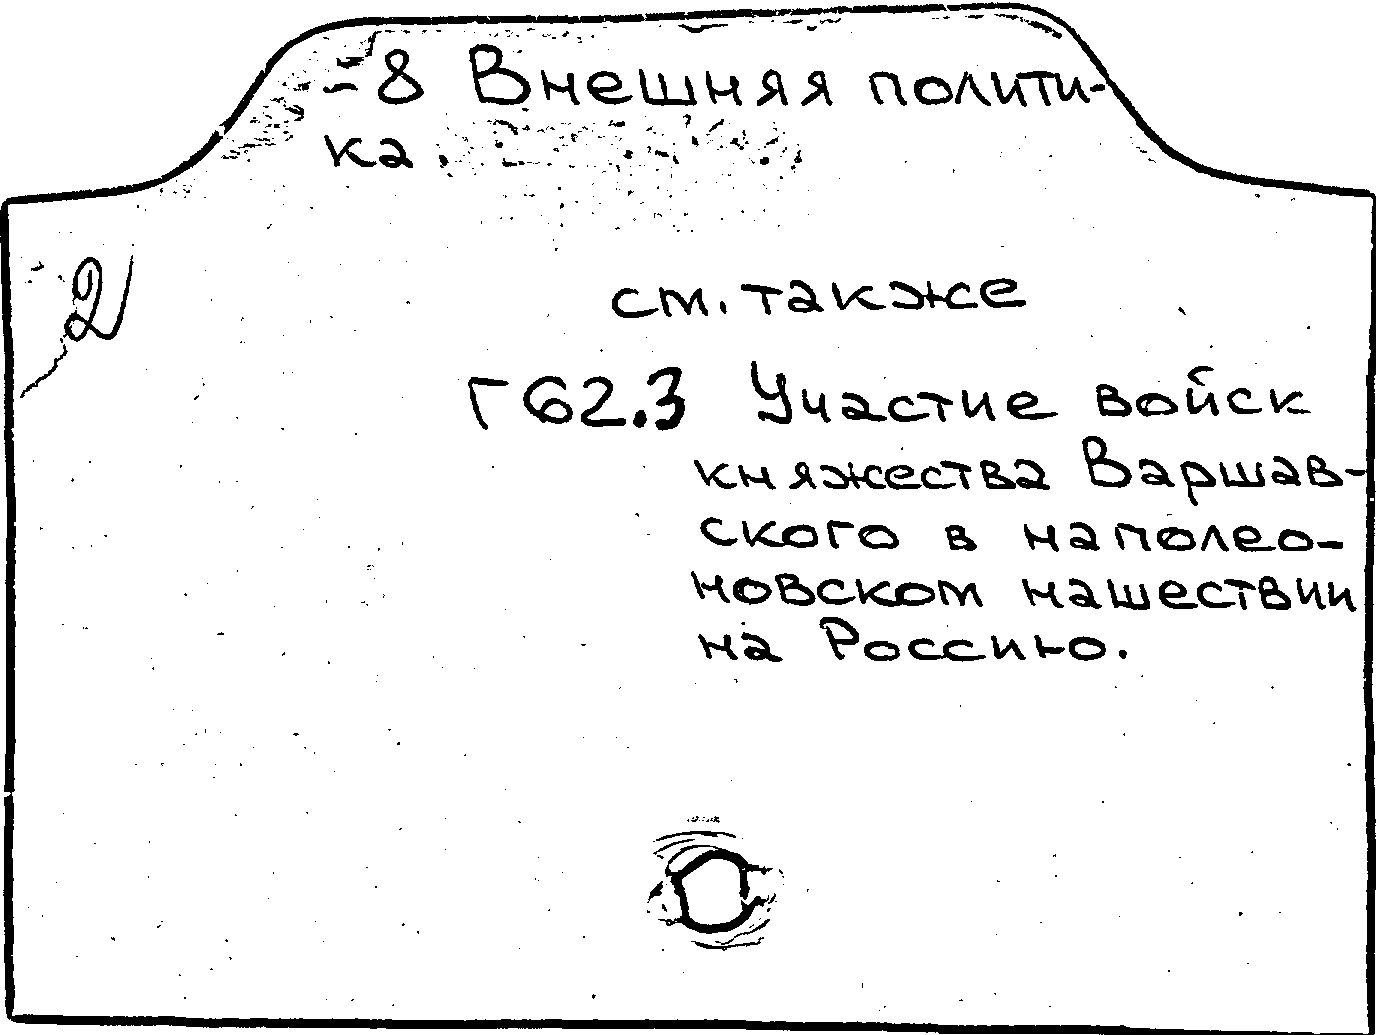 -8 Внешняя полити-
ка.
2
см. также
Г62.3 Участие войск
княжества Варшав-
ского в наполео-
новском нашествии
на Россию.